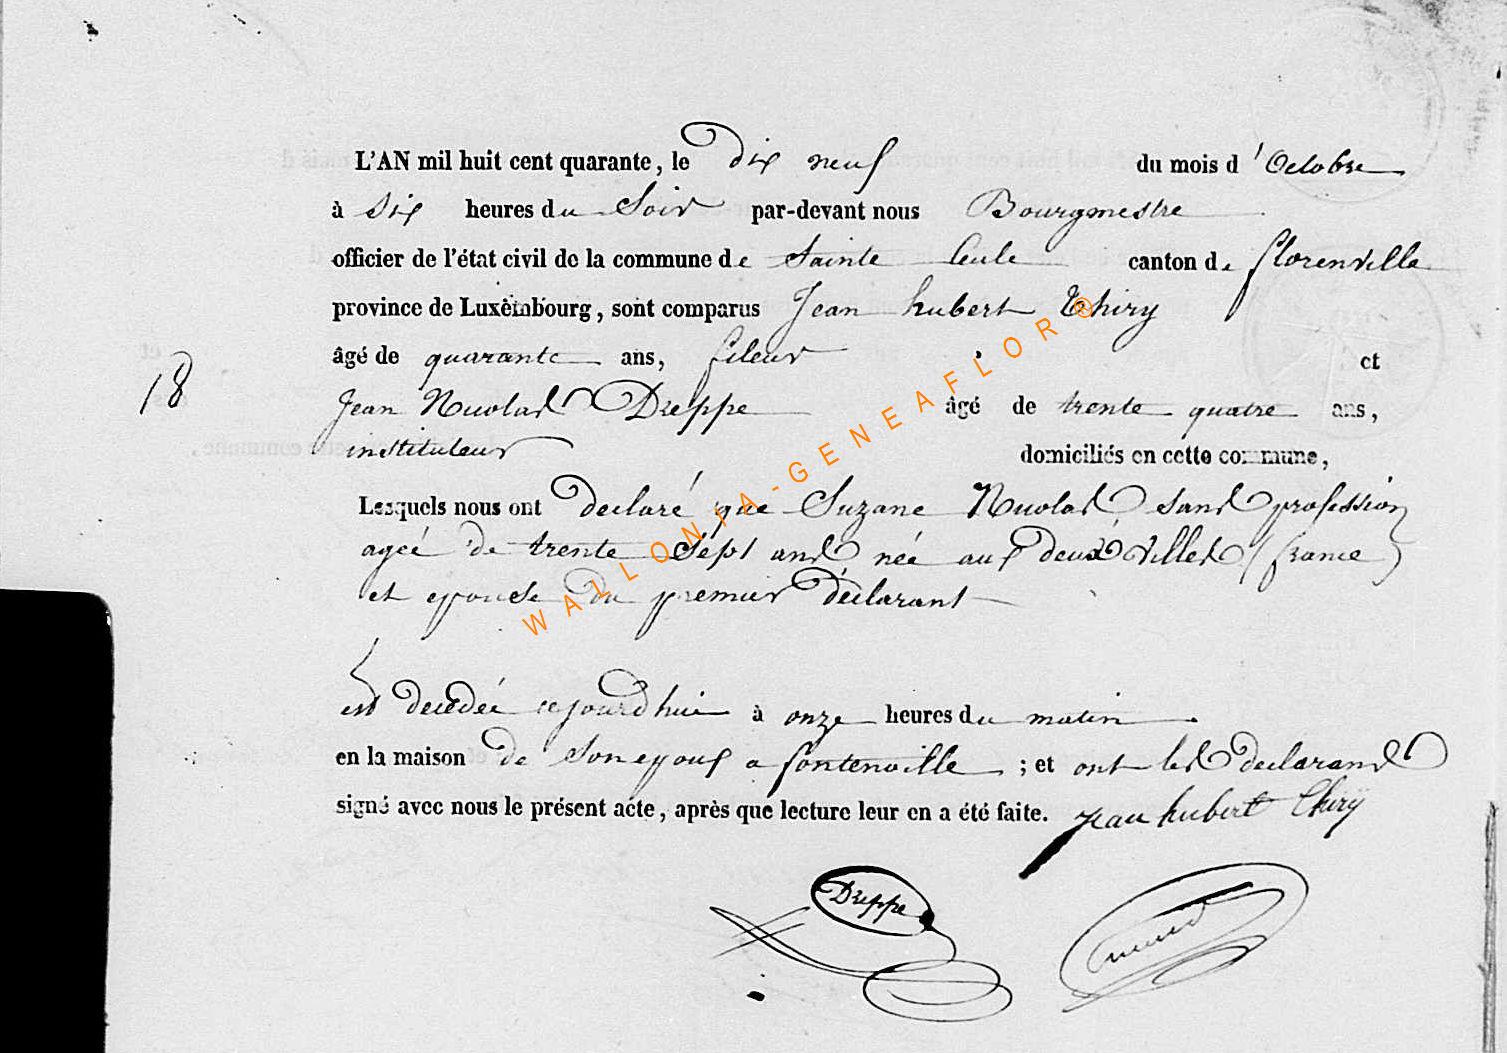 L'AN mil huit cent quarante, le dix neuf du mois d'Octobre
à Six heures du Soir par-devant nous Bourgmestre
officier de l'état civil de la commune de Sainte Cecile canton de florenville
province de Luxembourg, sont comparus Jean hubert Thiry
âgé de quarante ans, fileur et
18
Jean Nicolas Dreppe âgé de trente quatre ans,
instituteur domiciliés en cette commune,
Lesquels nous ont declaré que Suzane Nicolas sans profession
ageé de trente Sept ans née aux deux villes (france)
et epouse du premier déclarant
est decedée cejourd'hui à onze heures du matin
en la maison de son epoux a fontenoille ; et ont les declarans
signé avec nous le présent acte, après que lecture leur en a été faite. Jean hubert Thirÿ
Dreppe
WALLONIA-GENEAFLOR®